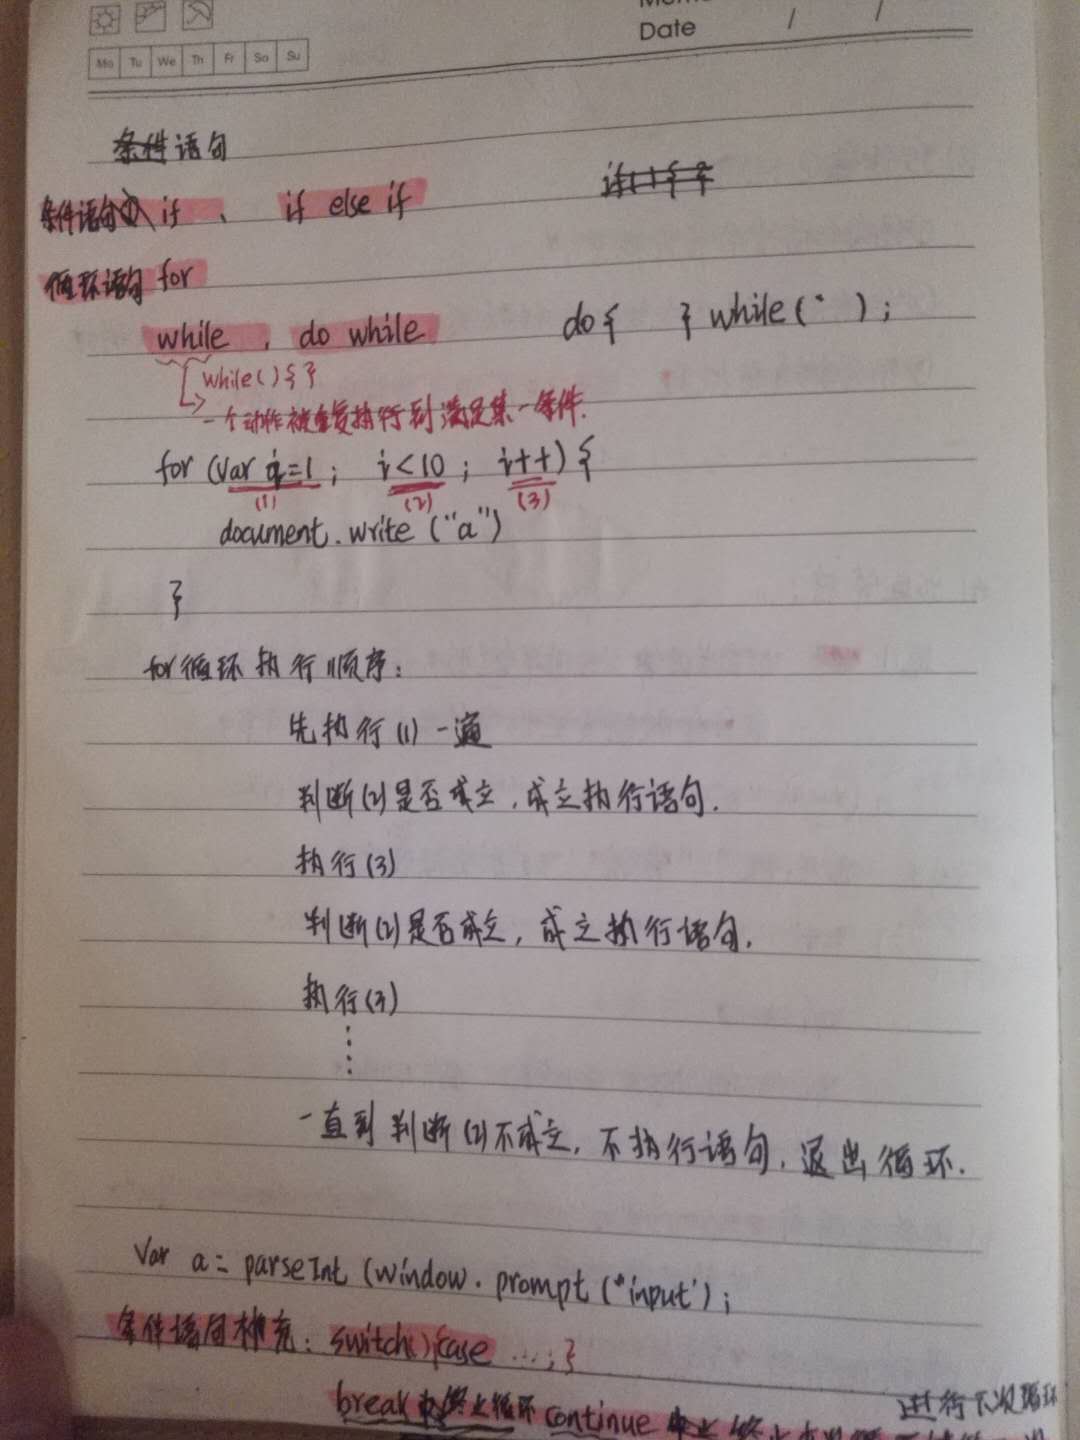 Date / /
Mo Tu We Th Fr Sa Su
条件语句
条件语句 if 、 if else if
循环语句 for
while , do while do { } while ( ) ;
while(){ }
一个动作被重复执行到满足某一条件.
for (var i=1 ; i<10 ; i++) {
(1) (2) (3)
document.write ("a")
}
for循环执行顺序:
先执行(1)一遍
判断(2)是否成立,成立执行语句.
执行(3)
判断(2)是否成立,成立执行语句.
执行(3)
一直到判断(2)不成立,不执行语句,退出循环.
Var a = parseInt (window.prompt ("input');
条件语句补充: switch(){case ...;}
进行下次循环
break 终止循环 continue